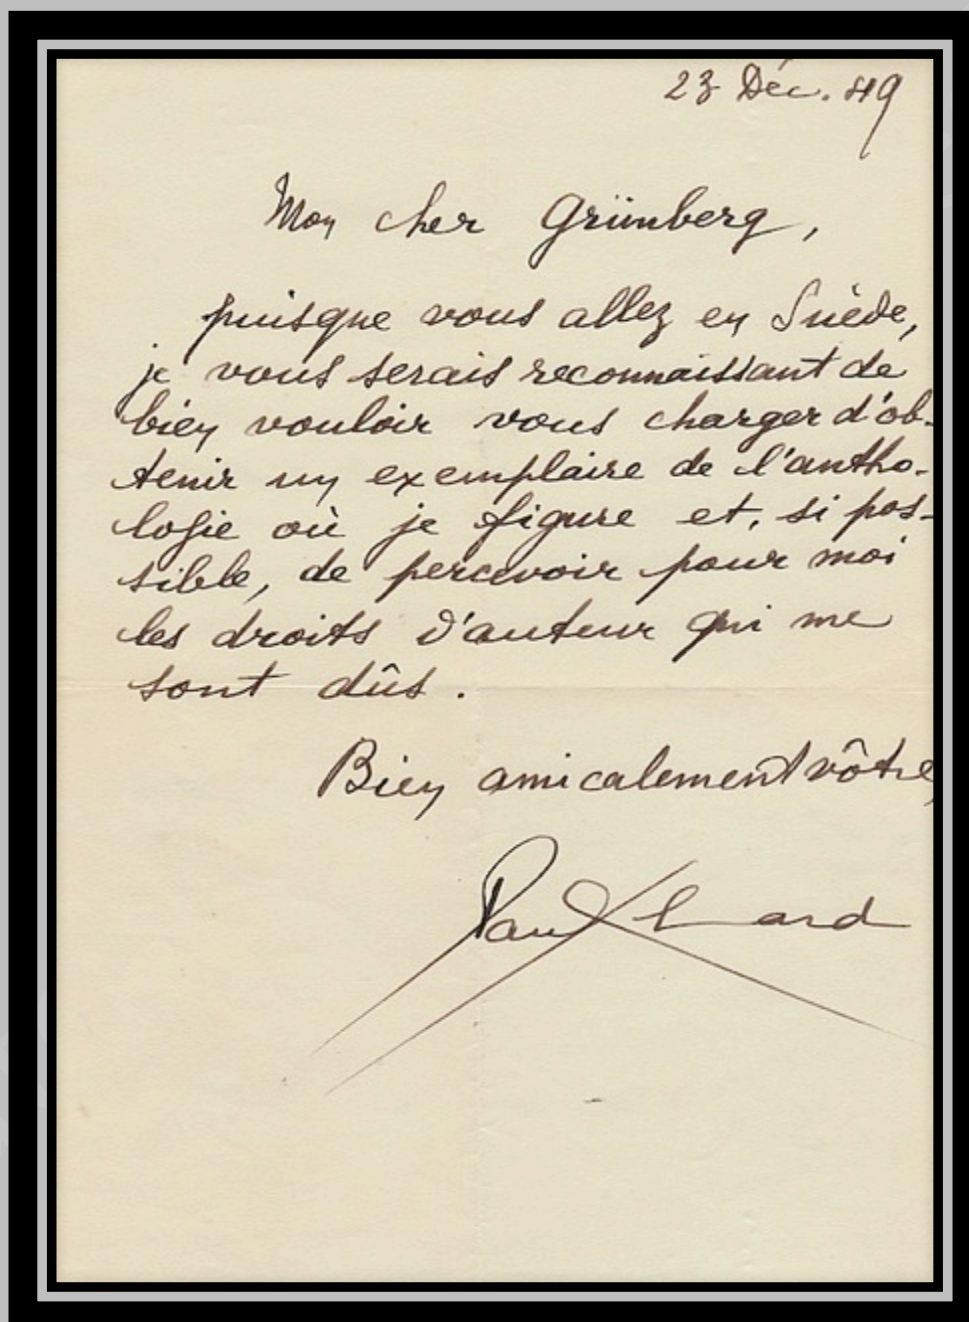 23 Déc. 49
Mon cher Grümberg,
puisque vous allez en Suède,
je vous serais reconnaissant de
bien vouloir vous charger d'ob-
tenir un exemplaire de l'antho-
logie où je figure et, si pos-
sible, de percevoir pour moi
les droits d'auteur qui me
sont dûs.
Bien amicalement vôtre,
Paul Eluard